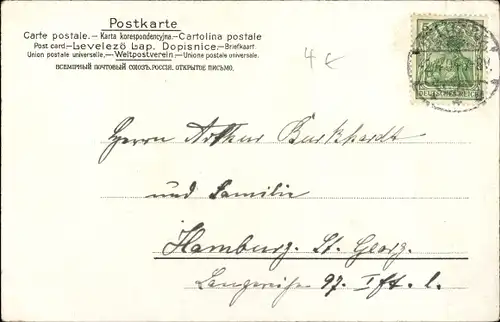 Postkarte
Carte postale. — Karta korespondencyjna. — Cartolina postale
Post card. — Levelező Lap. Dopisnice. — Briefkaart.
Union postale universelle. — Weltpostverein. — Unione postale universale.
ВСЕМІРНЫЙ ПОЧТОВЫЙ СОЮЗЪ. РОССІЯ. ОТКРЫТОЕ ПИСЬМО.
4 €
DEUTSCHES REICH
Herrn Arthur Burkhardt
und Familie
Hamburg. St. Georg.
97. I